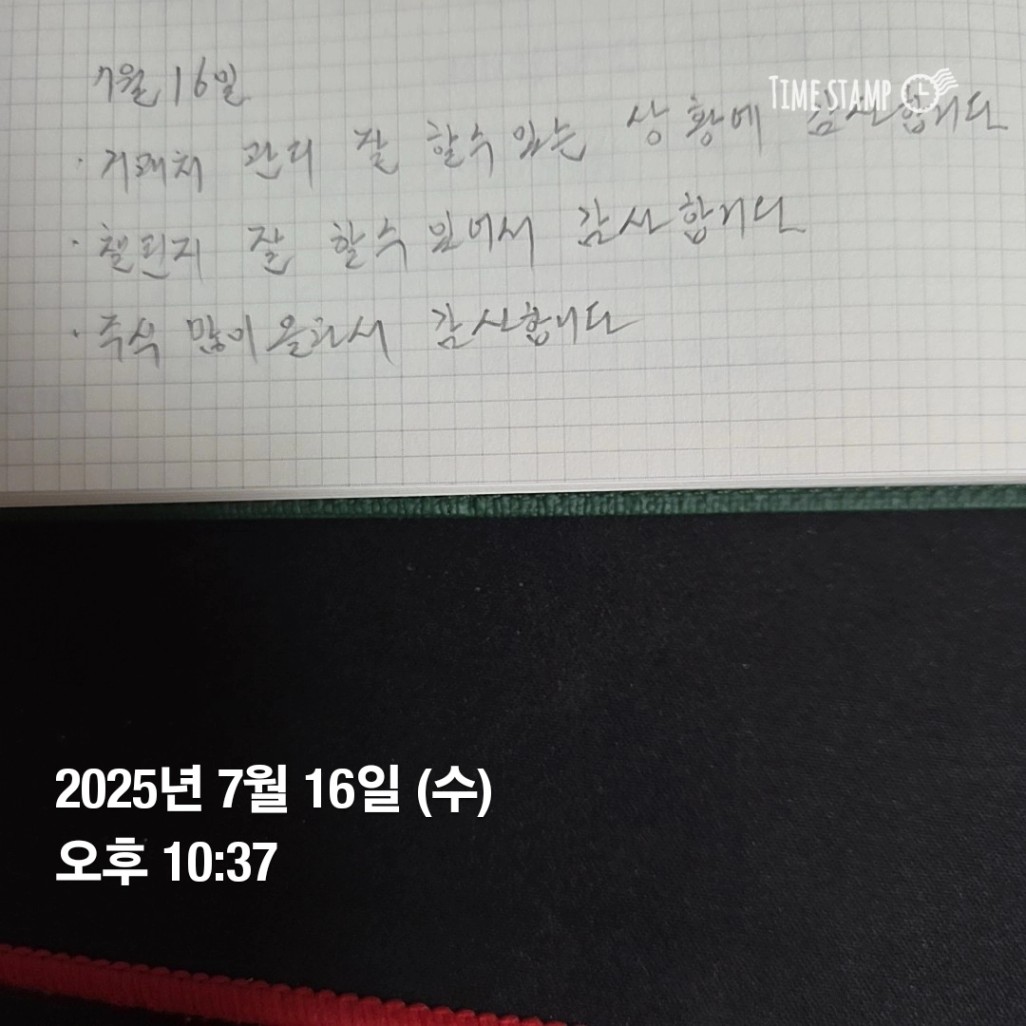 7월 16일
TIMESTAMP
· 거래처 관리 잘 할수 있는 상황에 감사합니다
· 챌린지 잘 할수 있어서 감사합니다
· 주식 많이 올라서 감사합니다
2025년 7월 16일 (수)
오후 10:37